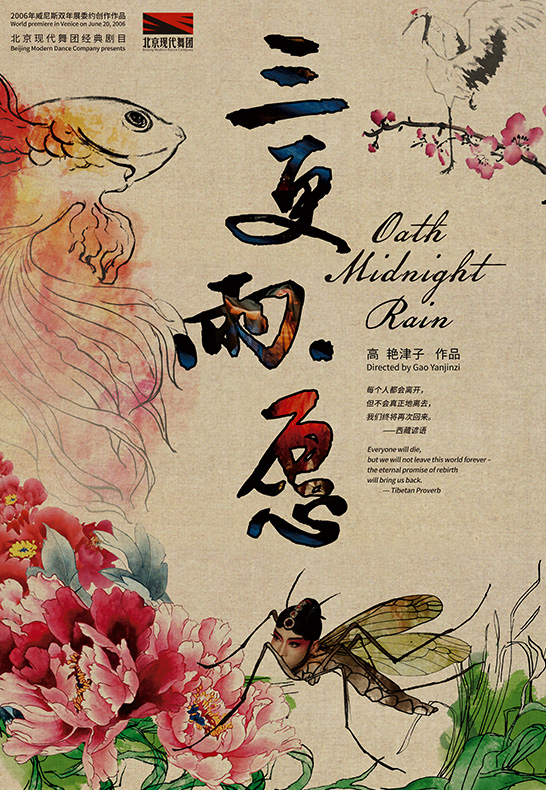 2006年威尼斯双年展委约创作作品
World premiere in Venice on June 20, 2006
北京现代舞团经典剧目
Beijing Modern Dance Company presents
北京现代舞团
Beijing Modern Dance Company
三更雨·愿
Oath
Midnight
Rain
高 艳津子 作品
Directed by Gao Yanjinzi
每个人都会离开，
但不会真正地离去，
我们终将再次回来。
——西藏谚语
Everyone will die,
but we will not leave this world forever –
the eternal promise of rebirth
will bring us back.
--- Tibetan Proverb